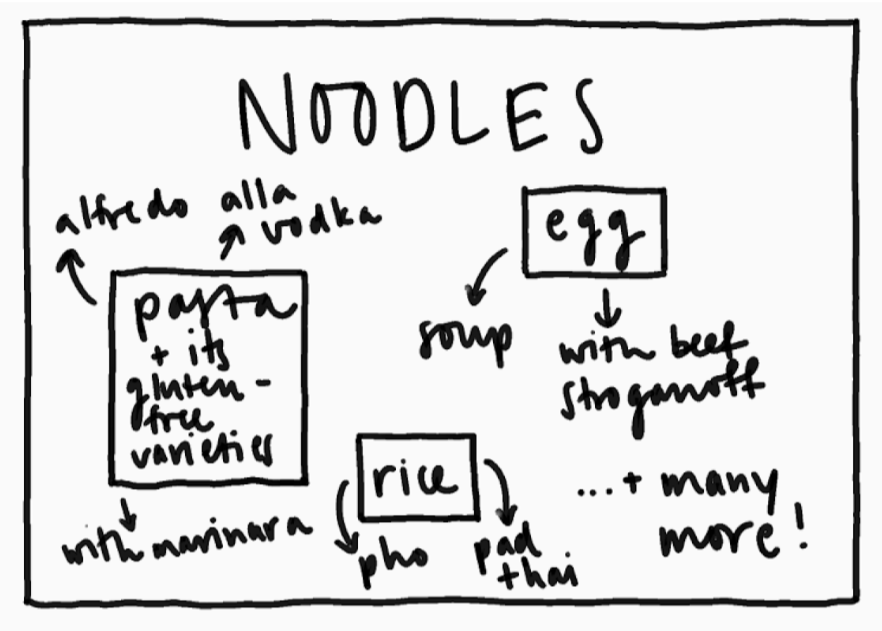 NOODLES
alfredo
alla
vodka
pasta
+ its
gluten-
free
varieties
with marinara
egg
soup
with beef
stroganoff
rice
pho
pad
thai
...+ many
more!